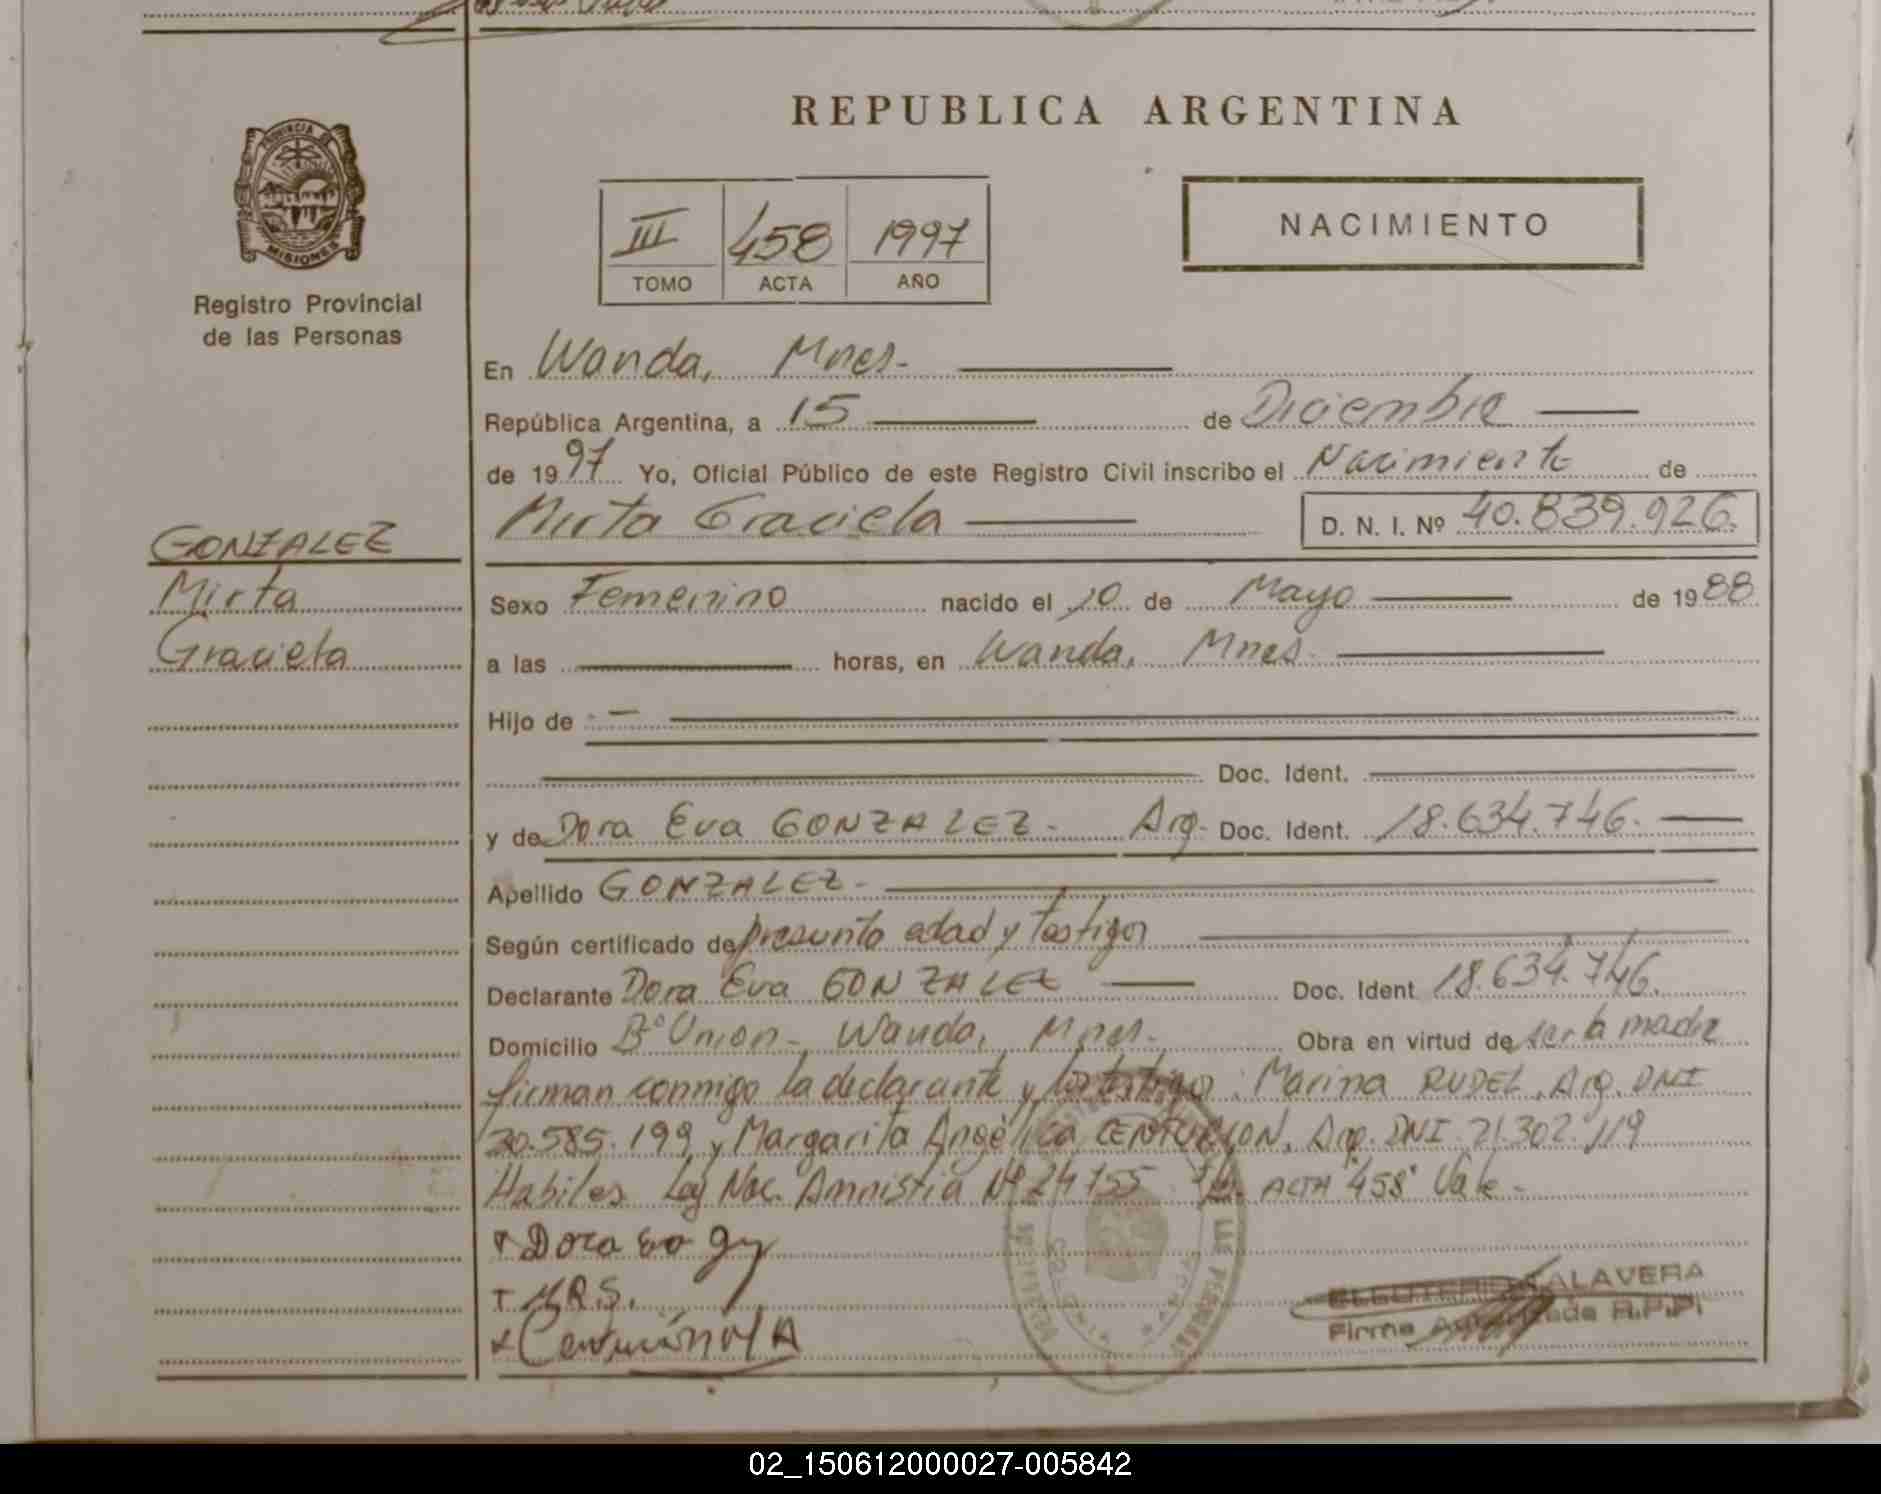 REPUBLICA ARGENTINA
PROVINCIA DE
MISIONES
Registro Provincial
de las Personas
III 458 1997
TOMO ACTA AÑO
NACIMIENTO
En Wanda, Mnes.-
República Argentina, a 15 de Diciembre
de 1997 Yo, Oficial Público de este Registro Civil inscribo el Nacimiento de
Mirta Graciela D. N. I. Nº 40.839.926.
GONZALEZ
Mirta
Graciela
Sexo Femenino nacido el 10 de Mayo de 1988
a las horas, en Wanda, Mnes.
Hijo de
Doc. Ident.
y de Dora Eva GONZALEZ.- Arg. Doc. Ident. 18.634.746.
Apellido GONZALEZ.-
Según certificado de presunta edad y testigos
Declarante Dora Eva GONZALEZ Doc. Ident 18.634.746.
Domicilio Bº Union.- Wanda, Mnes.- Obra en virtud de ser la madre
firman conmigo la declarante y los testigos: Marina RUDEL, Arg. DNI
30.585.199 y Margarita Angélica CENTURION, Arg. DNI 21.302.119
Habiles Ley Nac. Amnistia Nº 24755 ACTA "458" Vale.-
Dora
M.R.S.
Centurión M A
TALAVERA
Firma Autorizada R.P.P.
02_150612000027-005842